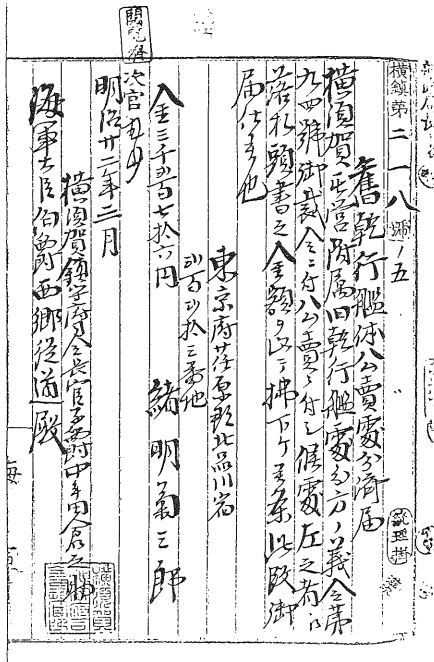 横鎮第二一八號ノ五
舊乾行艦体公賣處分済届
横須賀屯営附属旧乾行艦處分方ノ義令第
九四號御裁令ニ付公賣ニ付シ候處左之者ニ
落札頭書之金額ヲ以テ拂下ケ候条此段御
届仕候也
東京府荏原郡北品川宿
弐百弐拾三番地
金三千弐百七拾六円
緒明菊三郎
明治廿二年三月
横須賀鎮守府司令長官子爵中牟田倉之助
海軍大臣伯爵西郷従道殿
次官